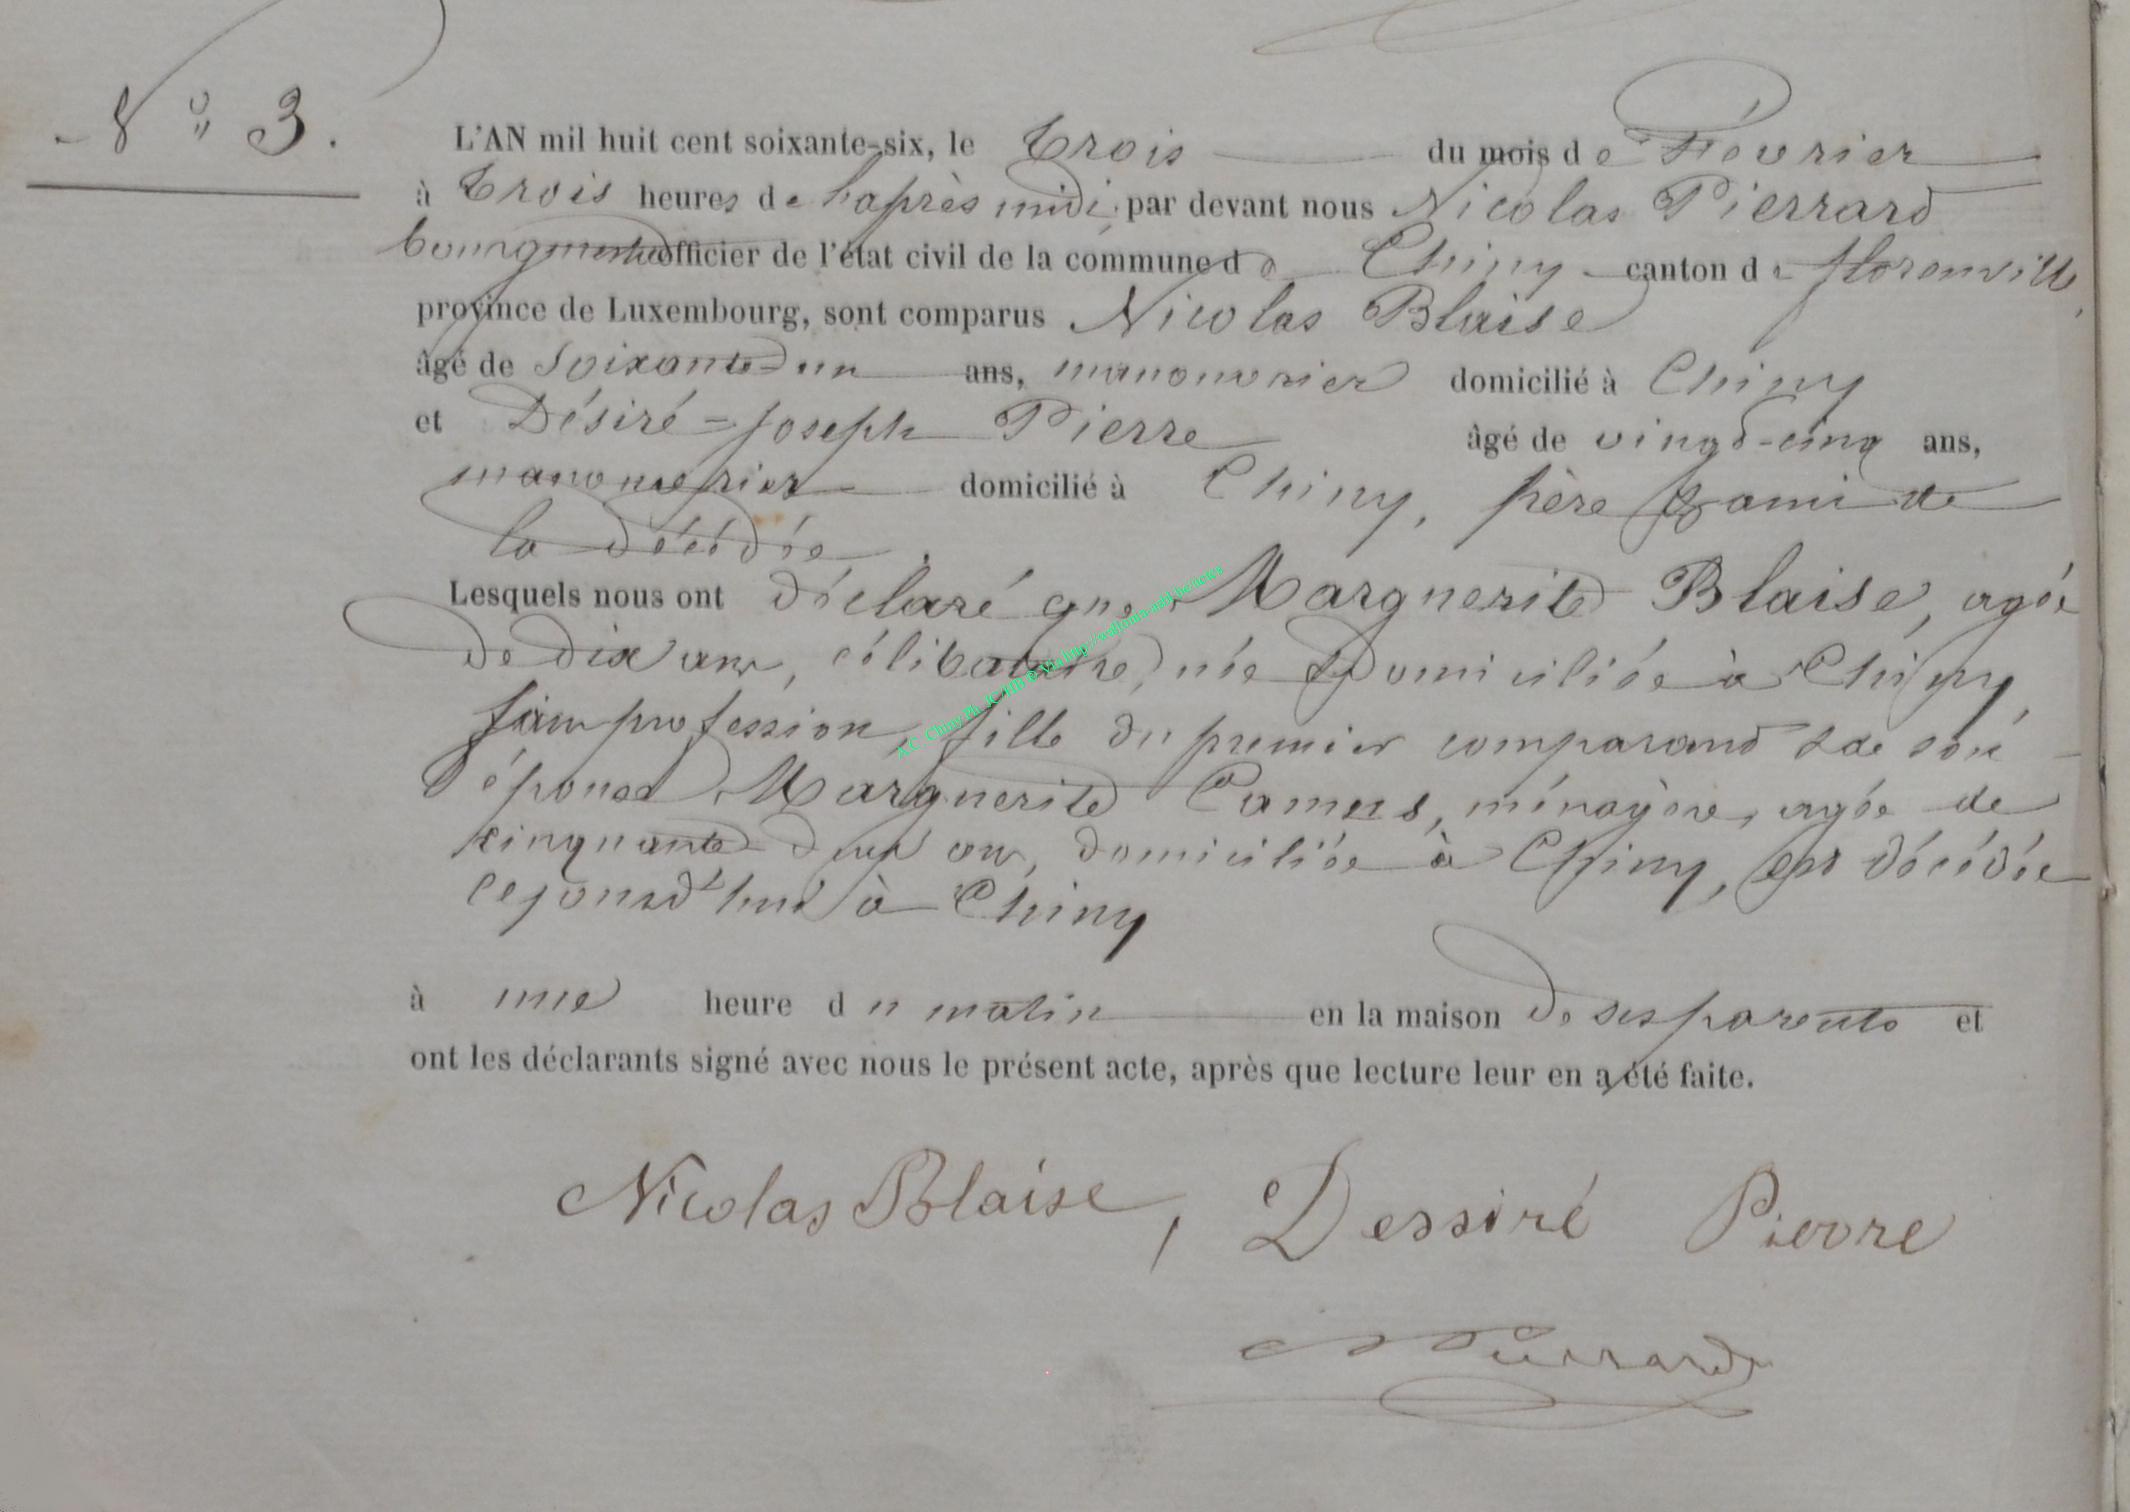 N° 3.
L'AN mil huit cent soixante-six, le trois du mois de Février
à trois heures de l'après midi, par devant nous Nicolas Pierrard
bourgmestre officier de l'état civil de la commune de Chiny canton de florenville,
province de Luxembourg, sont comparus Nicolas Blaise
âgé de soixante-un ans, manouvrier domicilié à Chiny
et Désiré-Joseph Pierre âgé de vingt-cinq ans,
manouvrier domicilié à Chiny, père & ami de
la décédée.
Lesquels nous ont déclaré que Marguerite Blaise, agée
de dix ans, célibataire, née & domiciliée à Chiny,
sans profession, fille du premier comparant & de son
épouse Marguerite Camus, ménagère, agée de
cinquante-deux ans, domiciliée à Chiny, est décédée
cejourd'hui à Chiny
à une heure du matin en la maison de ses parents et
ont les déclarants signé avec nous le présent acte, après que lecture leur en a été faite.
Nicolas Blaise, Dessiré Pierre
NPierrard
A.C. Chiny Ph. JC HB © Via http://wallonia-asbl.be/actes